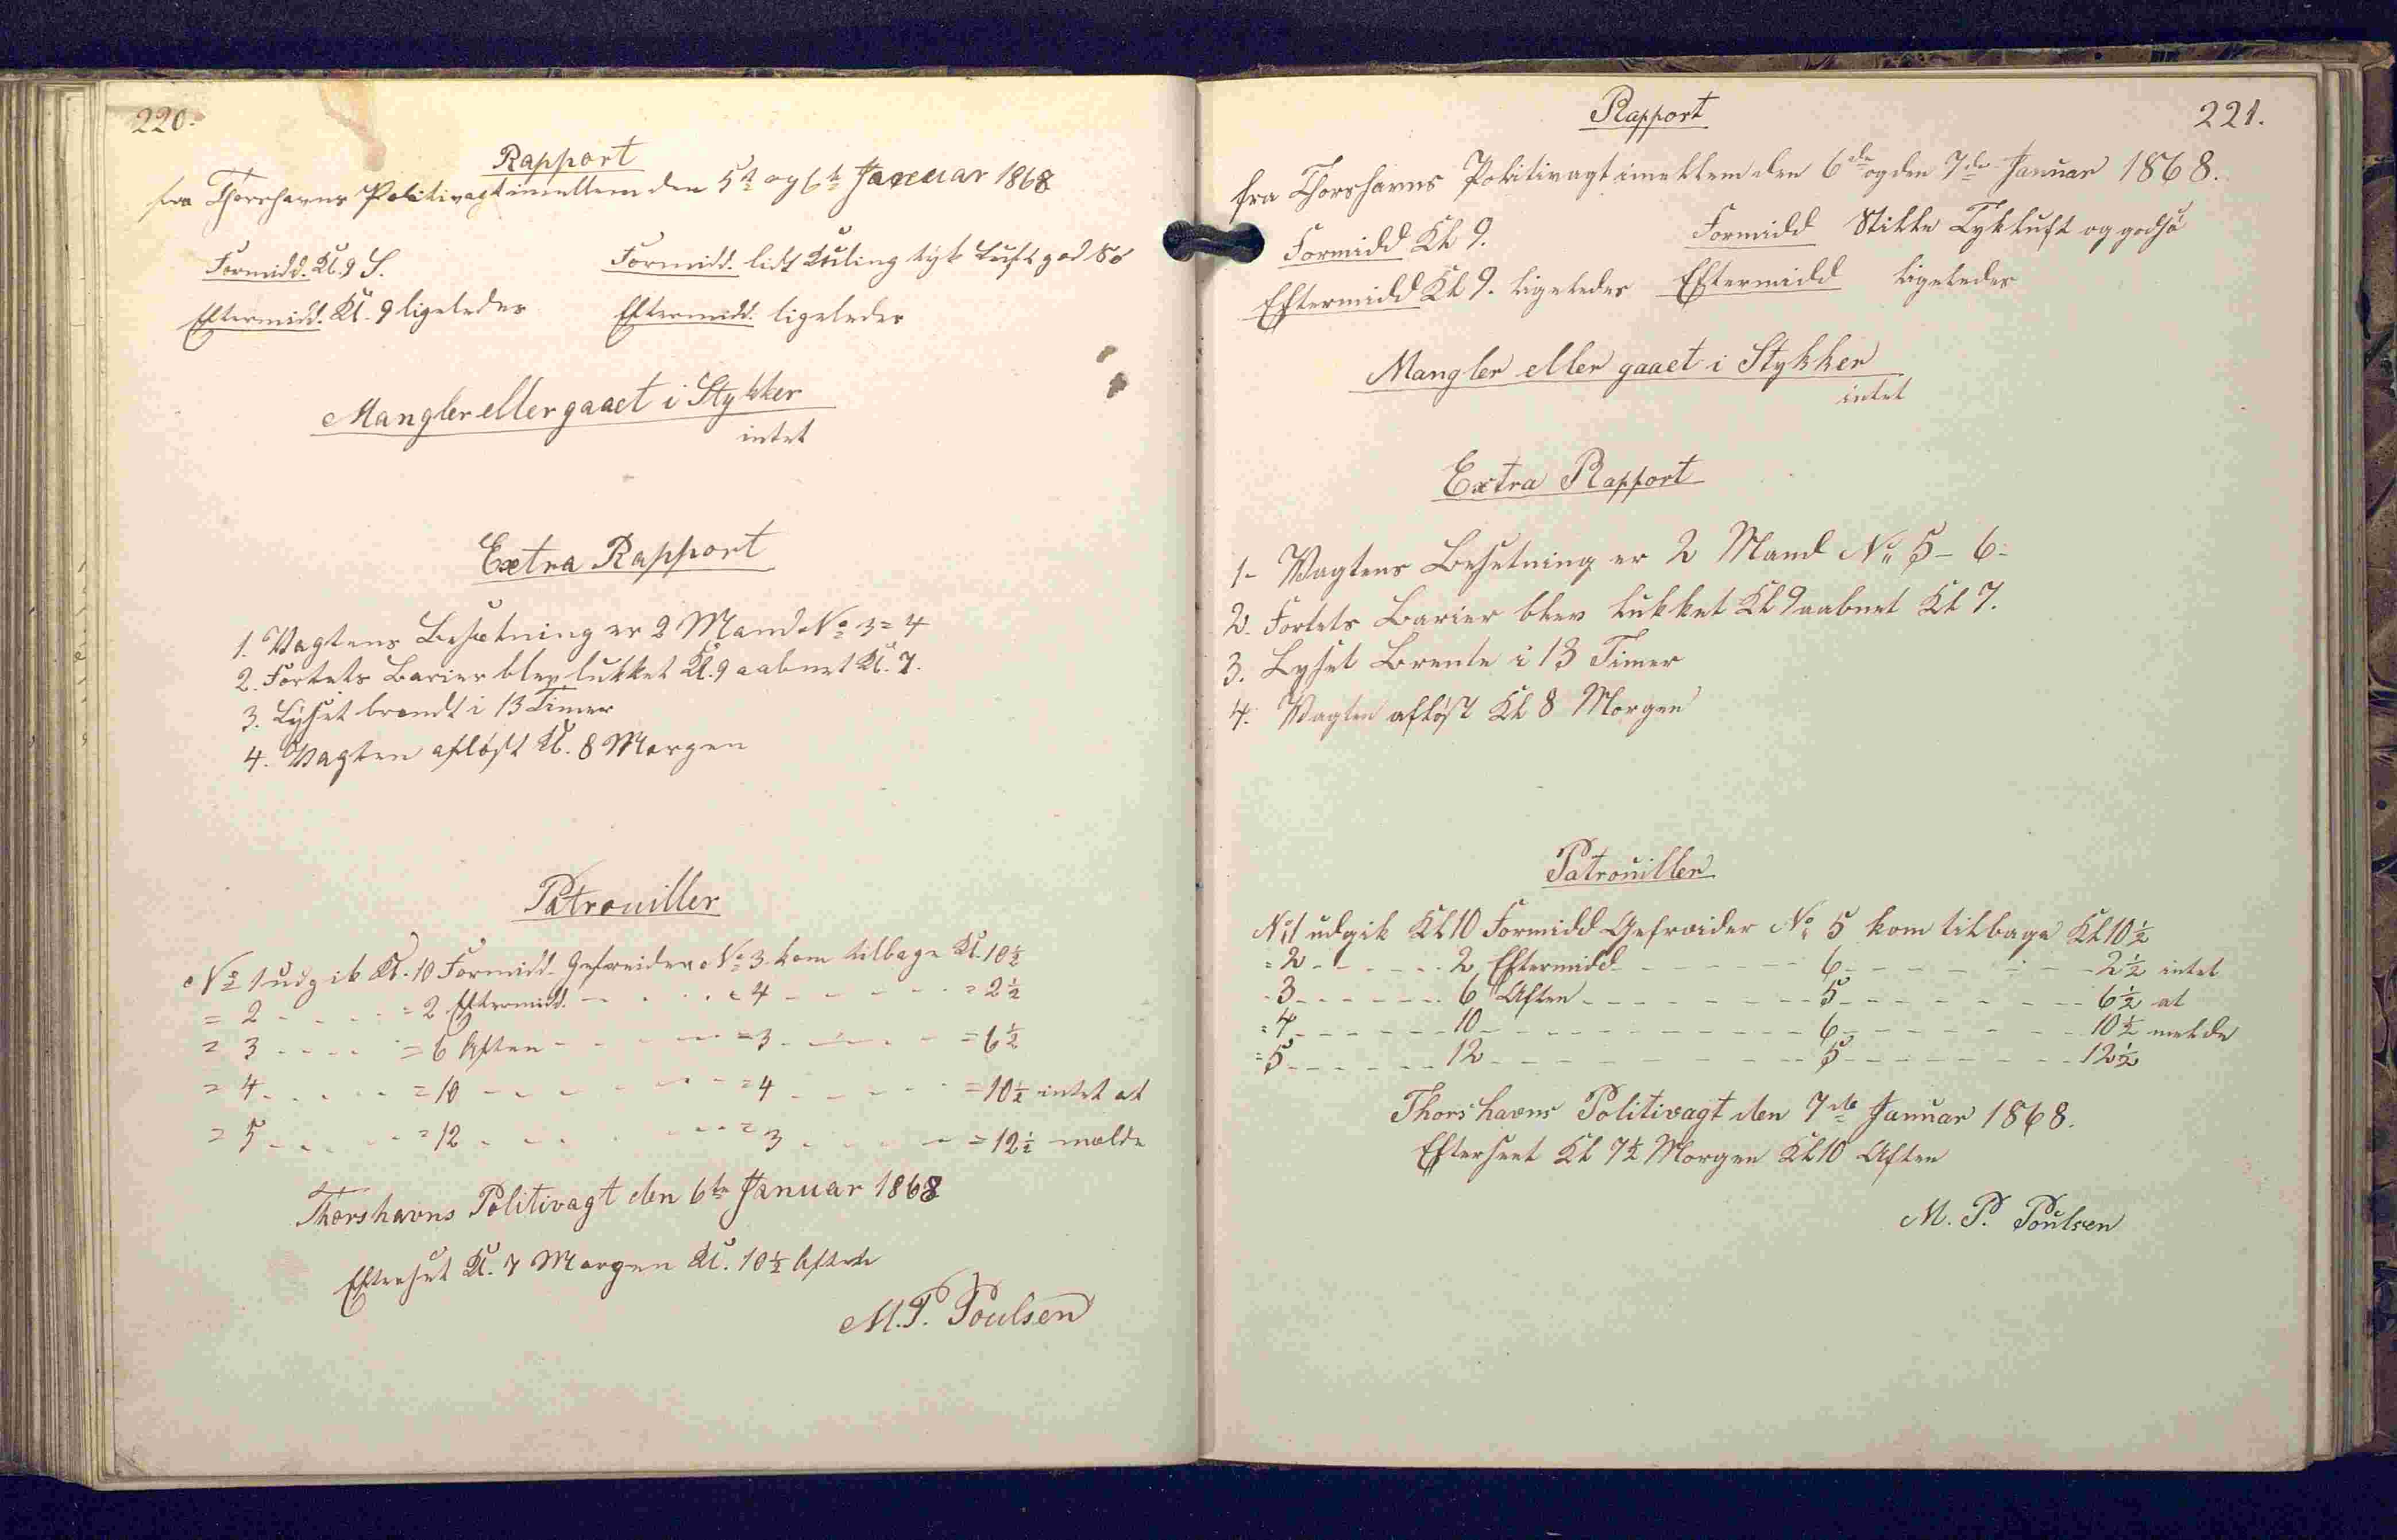 220.
Rapport
fra Thorshavns Politivagt imellem den 5te og 6te Januar 1868
Formidd. Kl. 9 S. Formidd. lidt Kuling tyk Luft god Sö
Eftermidd. Kl. 9 ligeledes Eftermidd. ligeledes
Mangler eller gaaet i Stykker
intet
Extra Rapport
1. Vagtens Besætning er 2 Mand No 3 = 4
2. Fortets Barier blev lukket Kl. 9 aabnet Kl. 7.
3. Lyset brændt i 13 Timer
4. Vagten aflöst Kl. 8 Morgen
Patrouiller
No 1 udgik Kl. 10 Formidd. Gefreider No 3 kom tilbage Kl. 10½
= 2 - - - - = 2 Eftermidd. - - - - = 4 - - - - = 2½
= 3 - - - - = 6 Aften - - - - = 3 - - - - = 6½
= 4 - - - - = 10 - - - - = 4 - - - - = 10½ intet at
= 5 - - - - = 12 - - - - = 3 - - - - = 12½ mælde
Thorshavns Politivagt den 6te Januar 1868
Efterset Kl. 7 Morgen Kl. 10½ Aften
M. P. Poulsen
221.
Rapport
fra Thorshavns Politivagt imellem den 6de og den 7de Januar 1868.
Formidd Kl 9. Formidd Stille Tykluft og godsö
Eftermidd Kl 9. ligeledes Eftermidd ligeledes
Mangler eller gaaet i Stykker
intet
Extra Rapport
1- Vagtens Besetning er 2 Mand No 5 - 6-
2. Fortets Barier blev lukket Kl 9 aabnet Kl 7.
3. Lyset Brente i 13 Timer
4. Vagten aflöst Kl 8 Morgen
Patrouiller
No 1 udgik Kl 10 Formidd Gefreider No 5 kom tilbage Kl 10½
= 2 - - - - 2 Eftermidd - - - - 6 - - - - 2½ intet
- 3 - - - - 6 Aften - - - - 5 - - - - 6½ at
= 4 - - - - 10 - - - - 6 - - - - 10½ melde
= 5 - - - - 12 - - - - 5 - - - - 12½
Thorshavns Politivagt den 7de Januar 1868.
Efterseet Kl 7½ Morgen Kl 10 Aften
M. P. Poulsen